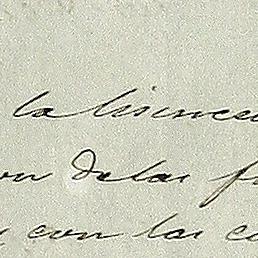 la lisence
on delas f
y con las c